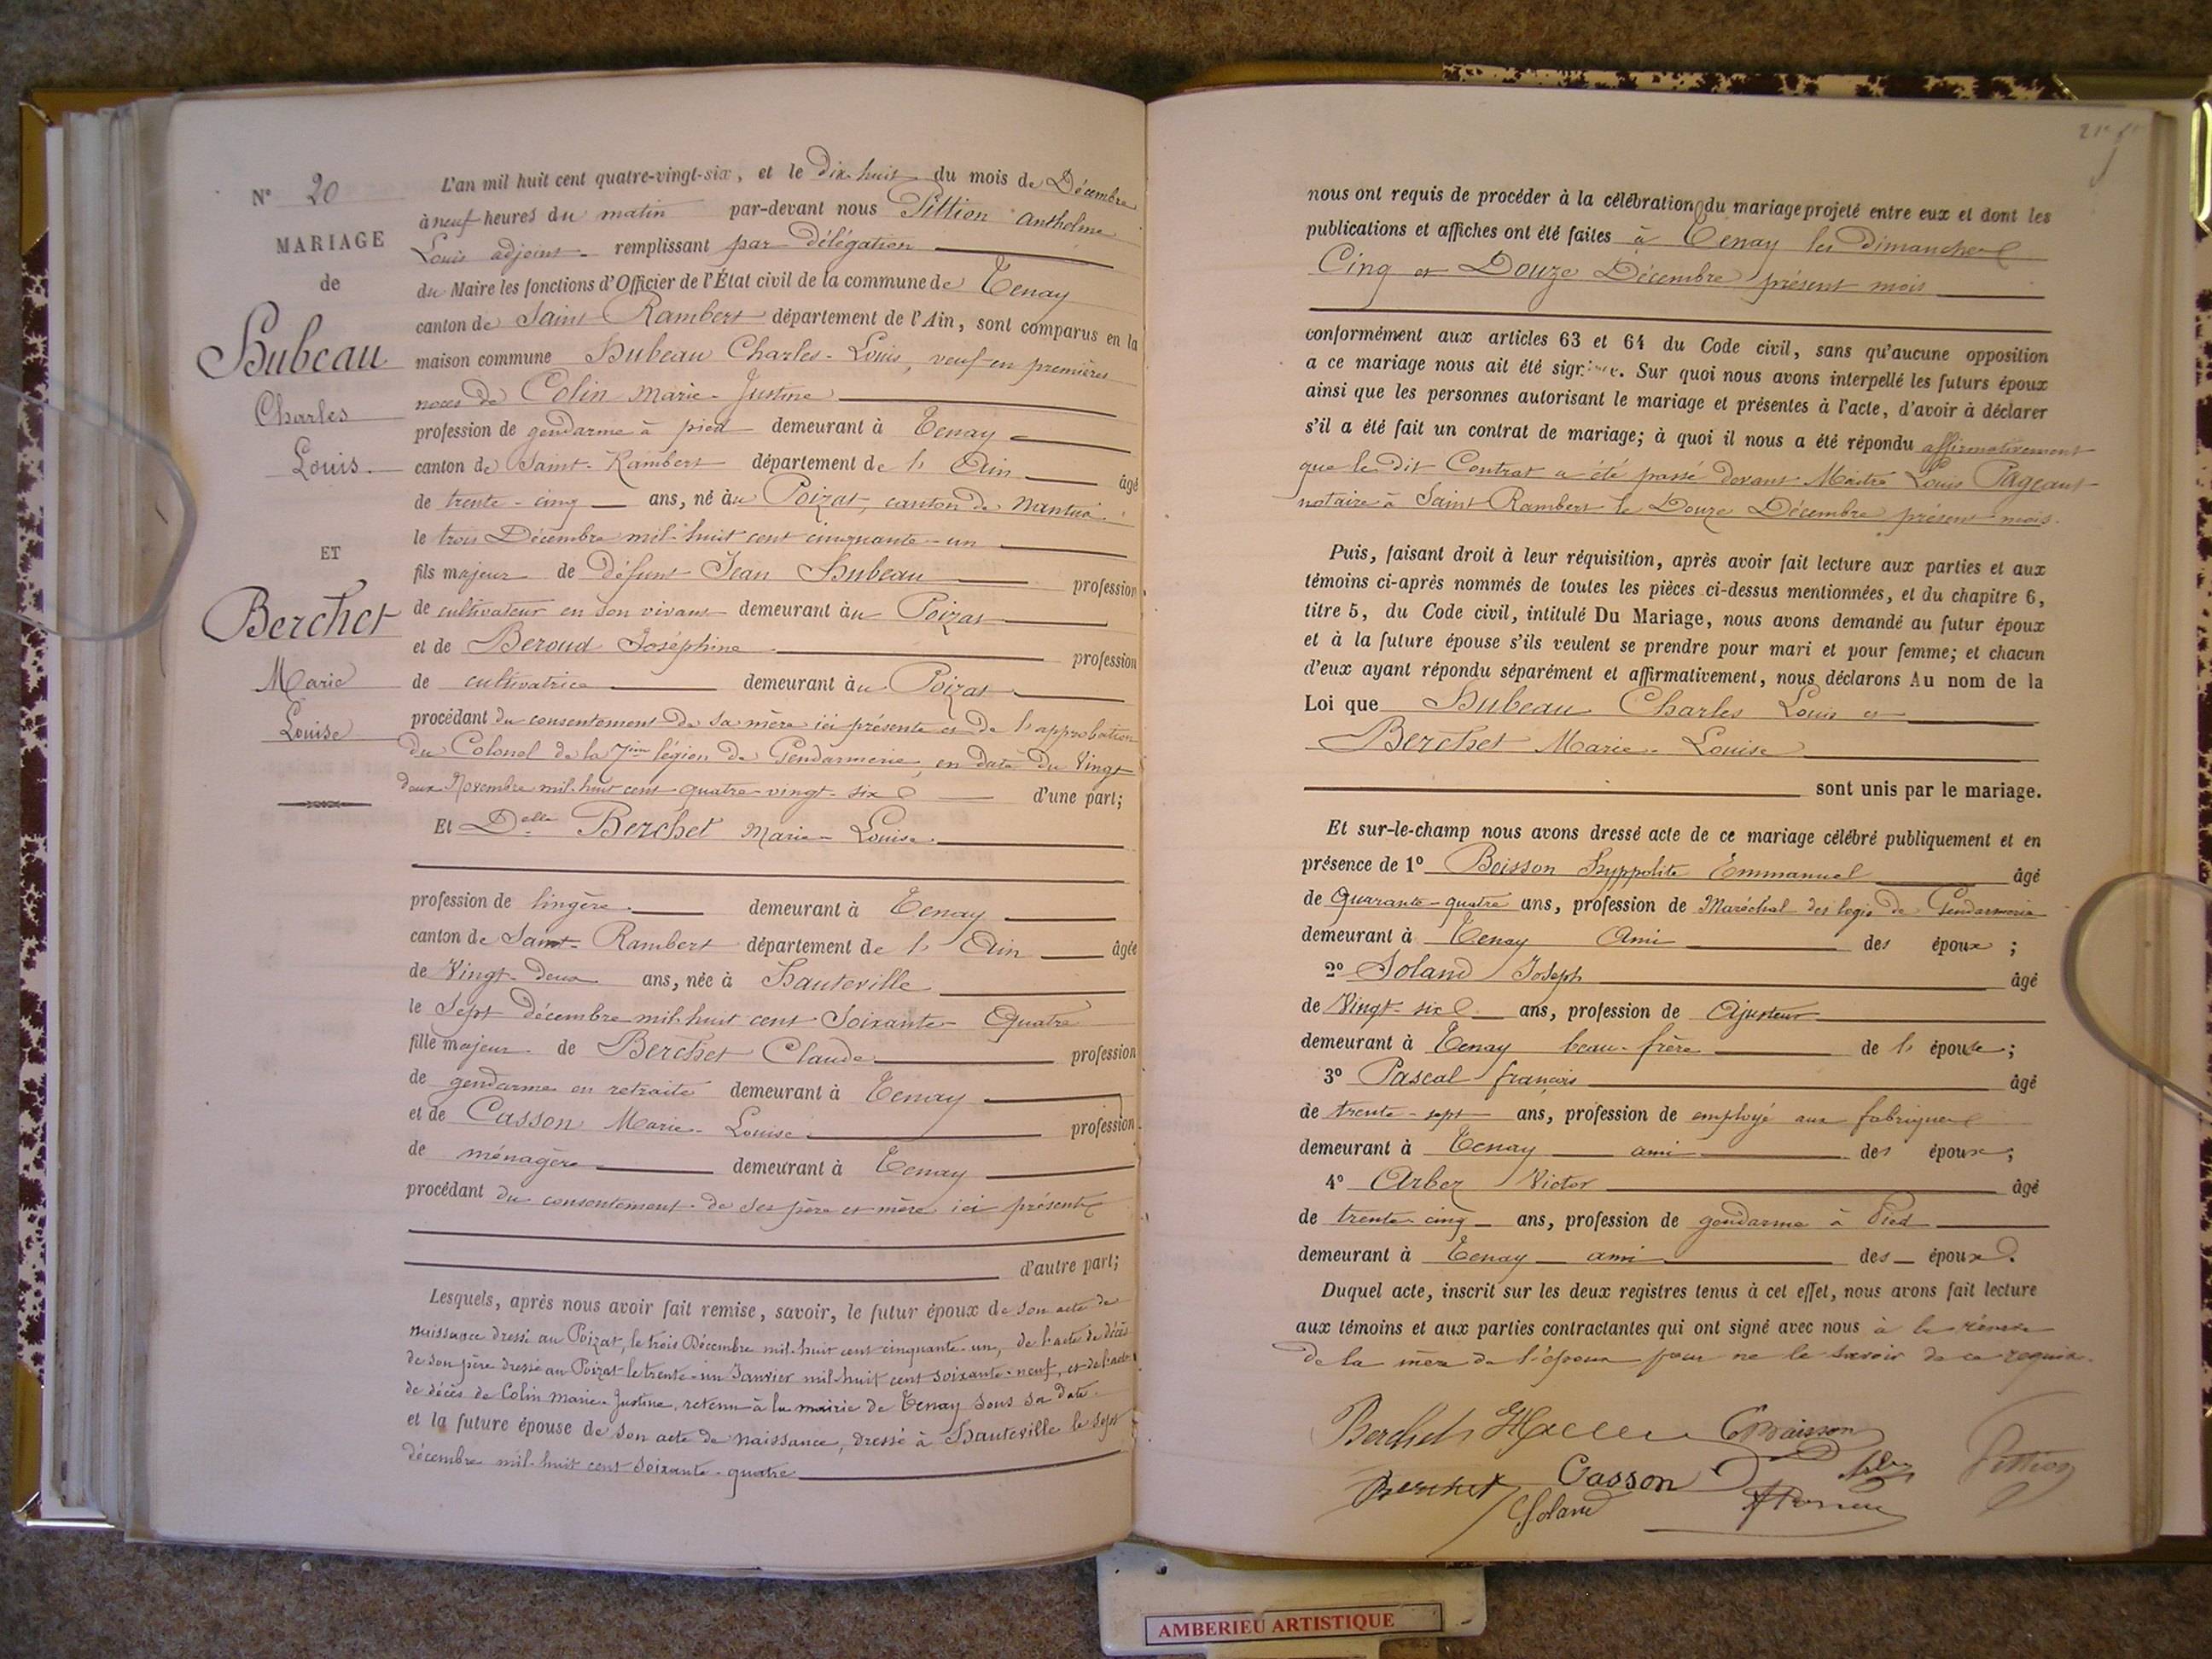 N° 20
MARIAGE
de
Hubeau
Charles
Louis.
ET
Berchet
Marie
Louise
L'an mil huit cent quatre-vingt-six, et le dix-huit du mois de Décembre
à neuf heures du matin par-devant nous Pittion Anthelme
Louis adjoint remplissant par délégation
du Maire les fonctions d'Officier de l'État civil de la commune de Tenay
canton de Saint Rambert département de l'Ain, sont comparus en la
maison commune Hubeau Charles-Louis, veuf en premières
noces de Colin Marie-Justine
profession de gendarme à pied demeurant à Tenay
canton de Saint-Rambert département de l'Ain âgé
de trente-cinq ans, né au Poizat, canton de Nantua
le trois Décembre mil-huit cent cinquante-un
fils majeur de défunt Jean Hubeau profession
de cultivateur en son vivant demeurant au Poizat
et de Beroud Joséphine profession
de cultivatrice demeurant au Poizat
procédant du consentement de sa mère ici présente et de l'approbation
du Colonel de la 7ème légion de Gendarmerie, en date du Vingt
deux Novembre mil-huit cent quatre-vingt-six d'une part;
Et Delle Berchet Marie-Louise
profession de lingère demeurant à Tenay
canton de Saint-Rambert département de l'Ain âgée
de Vingt-deux ans, née à Hauteville
le Sept décembre mil-huit cent Soixante-Quatre
fille majeur de Berchet Claude profession
de gendarme en retraite demeurant à Tenay
et de Casson Marie-Louise profession
de ménagère demeurant à Tenay
procédant du consentement de ses père et mère ici présents
d'autre part;
Lesquels, après nous avoir fait remise, savoir, le futur époux de son acte de
naissance dressé au Poizat, le trois Décembre mil-huit cent cinquante-un, de l'acte de décès
de son père dressé au Poizat le trente-un Janvier mil-huit cent soixante-neuf, et de l'acte
de décès de Colin Marie-Justine, retenu à la mairie de Tenay sous sa date.
et la future épouse de son acte de naissance, dressé à Hauteville le sept
décembre mil-huit cent soixante-quatre
nous ont requis de procéder à la célébration du mariage projeté entre eux et dont les
publications et affiches ont été faites à Tenay les Dimanches
Cinq et Douze Décembre présent mois
conformément aux articles 63 et 64 du Code civil, sans qu'aucune opposition
a ce mariage nous ait été signifiée. Sur quoi nous avons interpellé les futurs époux
ainsi que les personnes autorisant le mariage et présentes à l'acte, d'avoir à déclarer
s'il a été fait un contrat de mariage; à quoi il nous a été répondu affirmativement
que le dit Contrat a été passé devant Maître Louis Pageaut
notaire à Saint Rambert le Douze Décembre présent mois.
Puis, faisant droit à leur réquisition, après avoir fait lecture aux parties et aux
témoins ci-après nommés de toutes les pièces ci-dessus mentionnées, et du chapitre 6,
titre 5, du Code civil, intitulé Du Mariage, nous avons demandé au futur époux
et à la future épouse s'ils veulent se prendre pour mari et pour femme; et chacun
d'eux ayant répondu séparément et affirmativement, nous déclarons Au nom de la
Loi que Hubeau Charles Louis et
Berchet Marie-Louise
sont unis par le mariage.
Et sur-le-champ nous avons dressé acte de ce mariage célébré publiquement et en
présence de 1° Boisson Hyppolite Emmanuel âgé
de Quarante-quatre ans, profession de Maréchal des logis de Gendarmerie
demeurant à Tenay Ami des époux;
2° Soland Joseph âgé
de Vingt-six ans, profession de Ajusteur
demeurant à Tenay beau-frère de l'épouse;
3° Pascal françois âgé
de trente-sept ans, profession de employé aux fabriques
demeurant à Tenay ami des époux;
4° Arbez Victor âgé
de trente cinq ans, profession de gendarme à Pied
demeurant à Tenay ami des époux.
Duquel acte, inscrit sur les deux registres tenus à cet effet, nous avons fait lecture
aux témoins et aux parties contractantes qui ont signé avec nous à la réserve
de la mère de l'époux pour ne le savoir de ce requise.
Berchet Boisson
Berchet Casson Pittion
Soland
AMBERIEU ARTISTIQUE